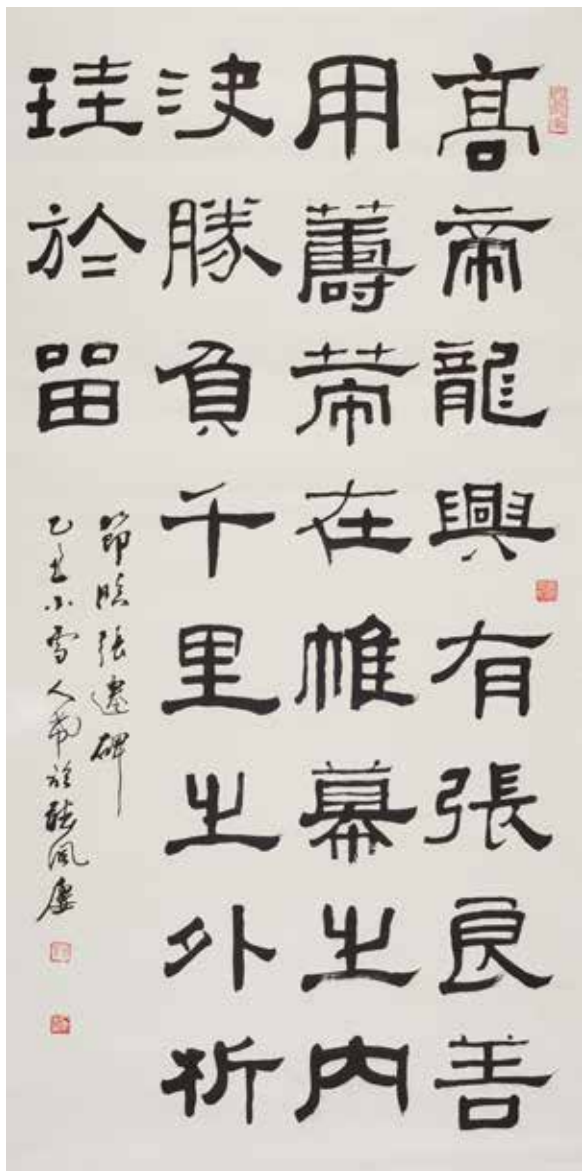 高帝龍興有張良善
用籌策在帷幕之內
決勝負千里之外析
珪於留
節臨張遷碑
乙丑小雪人甫於聽風廬